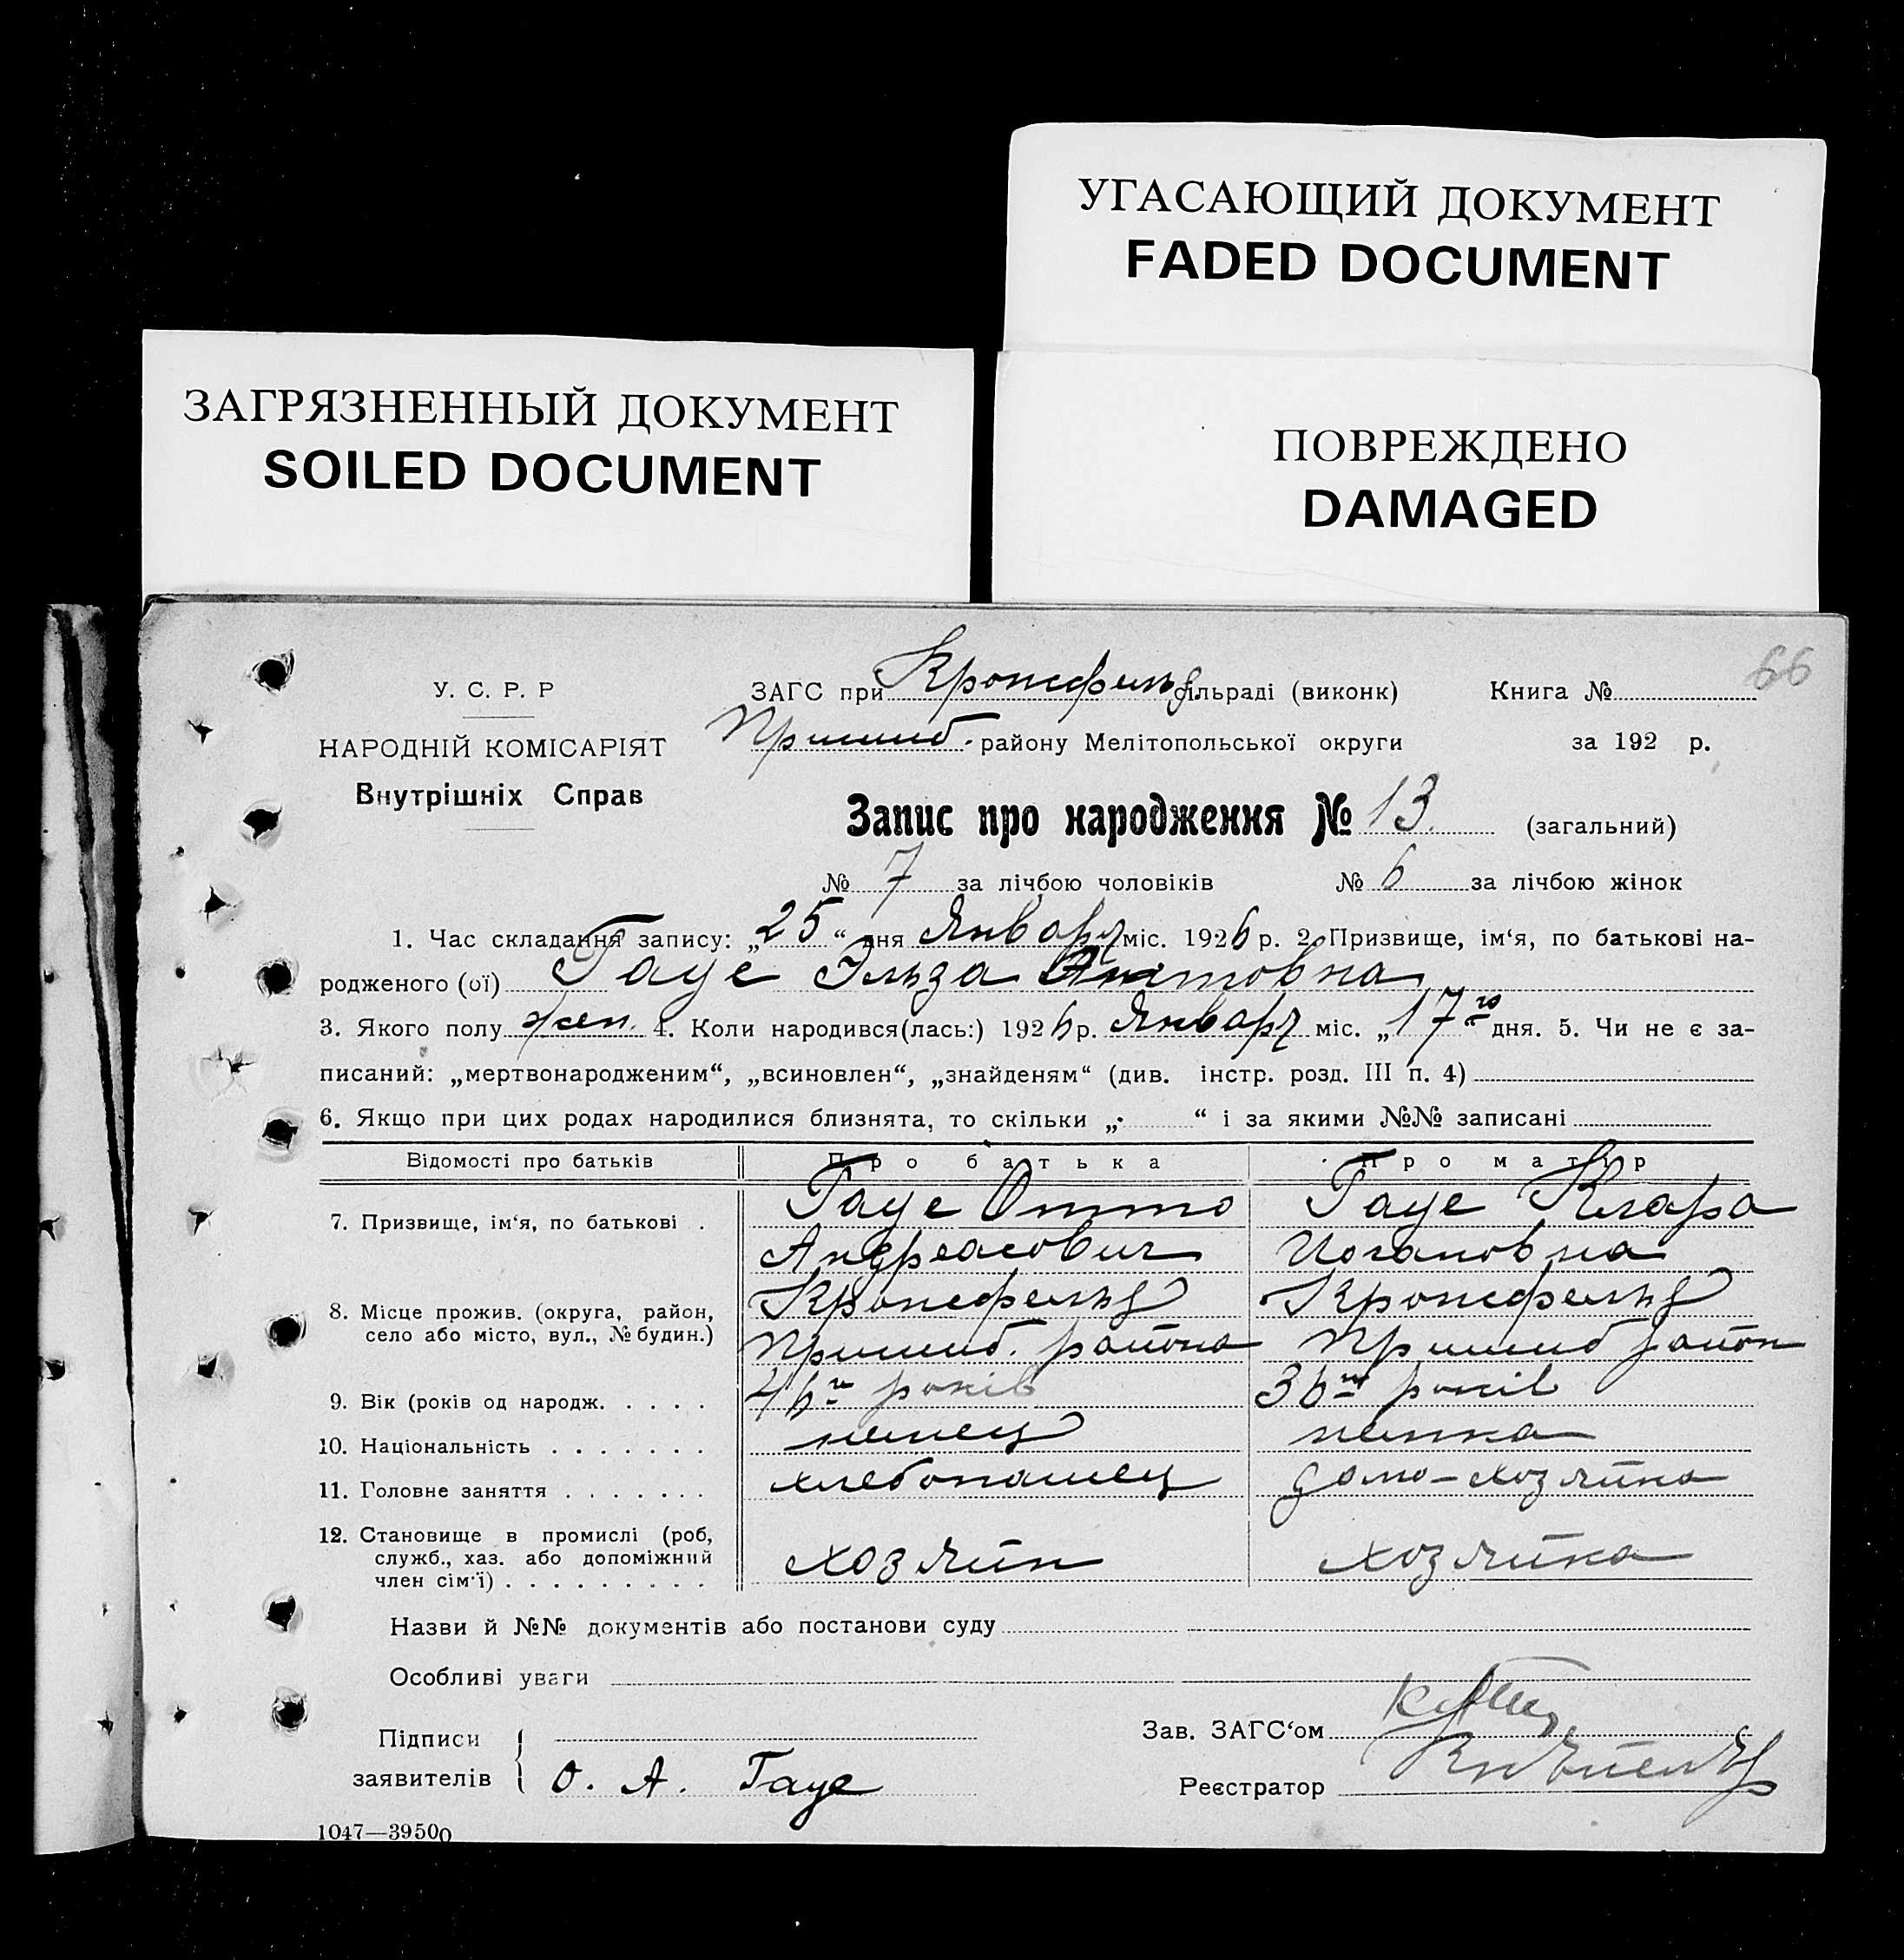 УГАСАЮЩИЙ ДОКУМЕНТ
FADED DOCUMENT
ЗАГРЯЗНЕННЫЙ ДОКУМЕНТ
SOILED DOCUMENT
ПОВРЕЖДЕНО
DAMAGED
66
У. С. Р. Р
НАРОДНІЙ КОМІСАРІЯТ
Внутрішніх Справ
ЗАГС при Кронсфельд сільраді (виконк) Книга №
Пришиб. району Мелітопольської округи за 192 р.
Запис про народження № 13. (загальний)
№ 7 за лічбою чоловіків № 6 за лічбою жінок
1. Час складання запису: „25“ дня Января міс. 1926 р. 2. Призвище, ім‘я, по батькові на-
родженого (ої) Гауе Эльза Оттовна
3. Якого полу жен. 4. Коли народився(лась:) 1926 р. Января міс. „17го“ дня. 5. Чи не є за-
писаний: „мертвонародженим“, „всиновлен“, „знайденям“ (див. інстр. розд. III п. 4)
6. Якщо при цих родах народилися близнята, то скільки „ “ і за якими №№ записані
Відомості про батьків Про батька Про матір
7. Призвище, ім‘я, по батькові . Гауе Отто Гауе Клара
Андреасович Иогановна
8. Місце прожив. (округа, район, Кронсфельд Кронсфельд
село або місто, вул., № будин.) Пришиб. района Пришиб район
9. Вік (років од народж. . . . . 46 років 36 років
10. Національність . . . . . . . немец немка
11. Головне заняття . . . . . . . хлебопашец домо-хозяйка
12. Становище в промислі (роб,
служб., хаз. або допоміжний хозяйн хозяйка
член сім‘ї) . . . . . . . . .
Назви й №№ документів або постанови суду
Особливі уваги
Підписи
заявителів О. А. Гауе
Зав. ЗАГС‘ом
Реєстратор
1047—39500